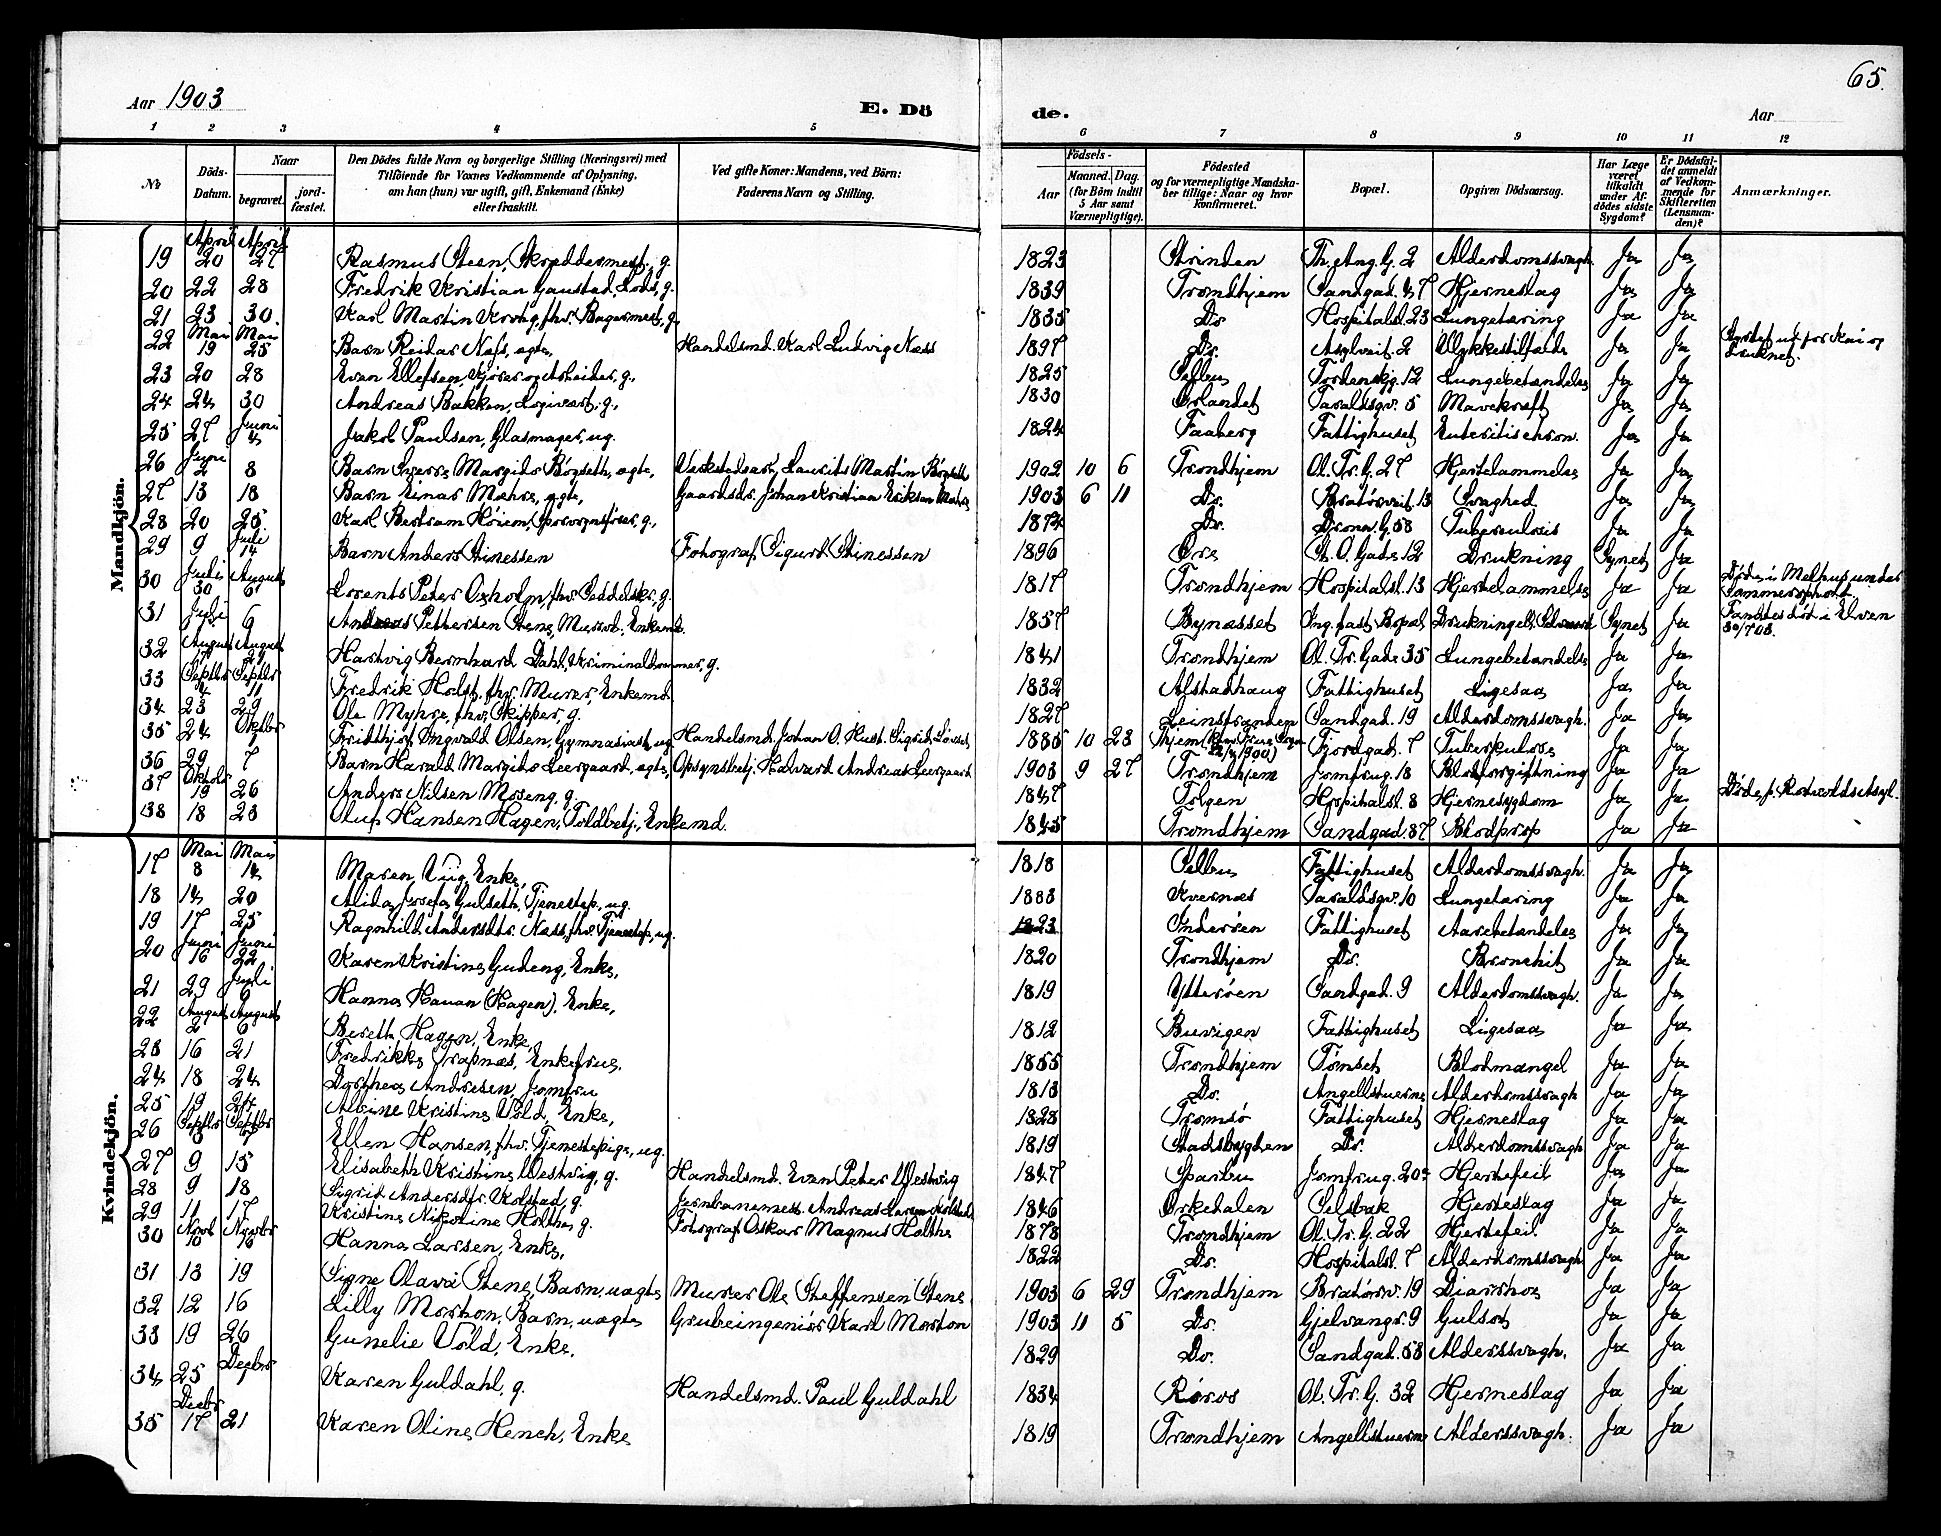 Aar 1903
E. Dö
de.
65.
Aar
1 2 3 4 5 6 7 8 9 10 11 12
No
Döds-Datum.
Naar
begravet.
jord-fæstet.
Den Dödes fulde Navn og borgerlige Stilling (Næringsvei) med
Tilföiende for Voxnes Vedkommende af Oplysning,
om han (hun) var ugift, gift, Enkemand (Enke)
eller fraskilt.
Ved gifte Koner: Mandens, ved Börn:
Faderens Navn og Stilling.
Födsels-
Aar
Maaned. Dag.
(for Börn indtil
5 Aar samt
Værnepligtige).
Födested
og for værnepligtige Mandska-
ber tillige: Naar og hvor
konfirmeret.
Bopæl.
Opgiven Dödsaarsag.
Har Læge
været
tilkaldt
under Af-
dödes sidste
Sygdom?
Er Dödsfal-
det anmeldt
af Vedkom-
mende for
Skifteretten
(Lensman-
den)?
Anmærkninger.
Mandkjön.
April April
19 20 27 Rasmus Steen, Skreddermest., g. 1823 Strinden Th. Ang. G. 2 Alderdomssvagh. Ja Ja
20 22 28 Fredrik Kristian Gaustad, Lods, g. 1839 Trondhjem Sandgad. 47 Hjerneslag Ja Ja
21 23 30 Karl Martin Krohg, fhv. Bagermest, g. 1835 Do Hospitalsl. 23 Lungetæring Ja Ja
Mai Mai
22 19 25 Barn Reidar Næss, ægte, Handelsmd. Karl Ludvig Næss 1897 Do. Asylveit. 2 Ulykkestilfælde Ja Ja Styrtet ud for Kai og
druknet.
23 20 28 Even Ellefsen, Kjører og Arbeider, g., 1825 Selbu Tordenskj. 12 Lungebetændelse Ja Ja
24 24 30 Andreas Bakken, Logivært, g., 1830 Ørlandet Taraldsgv. 5 Mavekræft Ja Ja
Juni
25 27 4 Jakob Paulsen, Glasmager, ug. 1824 Faaberg Fattighuset Enteritis chron. Ja Ja
Juni
26 2 8 Barn Sverre Margido Bøgseth, ægte, Verkstedsarb. Laurits Martin Bøgseth 1902 10 6 Trondhjem Ol. Tr. G. 27 Hjertelammelse Ja Ja
27 13 18 Barn Einar Mæhre, ægte, Gaardsdr. Johan Kristian Eriksen Mæhre 1903 6 11 Do. Bratørveit. 13 Svaghed Ja Ja
28 20 25 Karl Bertram Høiem, Sporvognsfører, g., 1874 Do. Dronn. G. 58 Tuberculosis Ja Ja
Juli
29 9 14 Barn Anders Stinessen Fotograf Sigurd Stinessen 1896 Øre St. O. Gade 12 Drukning Synet Ja
Juli August
30 30 6 Lorents Peter Oxholm, fhv. Seddelskr., g. 1817 Trondhjem Hospitalsl. 13 Hjertelammelse Ja Ja Døde i Melhus under
Sommerophold.
Juli
31 6 Andreas Pettersen Stene, Mursv., Enkemd. 1857 Bynæsset Ing. fast Bopæl Drukning Synet Ja Fandtes død i Elven
30/7 03.
August August
32 Hartvig Bernhard Dahl, Kriminaldommer, g. 1841 Trondhjem Ol. Tr. Gade 35 Lungebetændelse Ja Ja
Septbr Septbr
33 4 11 Fredrik Holst, fhv. Murer, Enkemd. 1832 Alstadhaug Fattighuset Ligesaa Ja Ja
34 23 29 Ole Myhre, fhv. Skipper, g. 1827 Leinstranden Sandgad. 19 Alderdomssvagh. Ja Ja
Oktbr
35 24 Fridthjof Ingvald Olsen, Gymnasiast, ug. Handelsmd. Johan O. Hust. Sigrid 1885 10 23 Thjem Fjordgad. 7 Tuberkulose Ja Ja
36 29 7 Barn Harald Margido Leergaard, ægte, Opsynsbetj. Halvard Andreas Leergaard 1903 9 27 Trondhjem Jomfrug. 18 Blodforgiftning Ja Ja
Oktobr
37 19 26 Anders Nilsen Moseng, g. 1847 Tolgen Hospitalsl. 8 Hjernesygdom Ja Ja Døde p. Rotvoldsasyl.
38 18 23 Oluf Hansen Hagen, Toldbetj., Enkemd. 1845 Trondhjem Sandgad. 37 Blodprop Ja Ja
Kvindekjön.
Mai Mai
17 8 14 Maren Viig, Enke, 1818 Selbu Fattighuset Alderdomssvagh. Ja Ja
18 14 20 Alida Josefa Gulseth, Tjenestep., ug. 1883 Kvernæs Taraldsgv. 10 Lungetæring Ja Ja
19 17 25 Ragnhild Andersdtr. Næss, fhv. Tjenestep, ug. 1823 Inderøen Fattighuset Aarebetændelse Ja Ja
Juni Juni
20 16 22 Karen Kristine Gudeng, Enke, 1820 Trondhjem Do. Bronchit Ja Ja
Juli
21 29 6 Hanna Hauan (Hagen), Enke, 1819 Ytterøen Sandgad. 9 Alderdomssvagh. Ja Ja
August August
22 2 6 Bereth Hagen, Enke, 1812 Buvigen Fattighuset Ligesaa Ja Ja
23 16 21 Fredrikke Trapnæs, Enkefrue, 1855 Trondhjem Tønset Blodmangel Ja Ja
24 18 24 Dorthea Andresen, Jomfru 1813 Do. Angellstuerne Alderdomssvagh Ja Ja
25 19 24 Albine Kristine Vold, Enke, 1828 Tromsø Fattighuset Hjerneslag Ja Ja
Septbr Septbr
26 Ellen Hansen, fhv. Tjenestepige, ug. 1819 Stadsbygden Do. Alderdomssvagh Ja Ja
27 9 15 Elisabeth Kristine Westvig, g. Handelsmd. Even Peter Westvig 1847 Sparbu Jomfrug. 20a Hjertefeil Ja Ja
28 9 18 Sigrid Andersdtr. Kolstad, g. Jernbanemest. Andreas Larsen Kolstad 1846 Orkedalen Selsbak Hjerteslag Ja Ja
29 11 17 Kristine Nikoline Holthe, g. Fotograf Oskar Magnus Holthe 1878 Trondhjem Ol. Tr. G. 22 Hjertefeil Ja Ja
Novb Novbr
30 10 16 Hanna Larsen, Enke, 1822 Do. Hospitalsl. 7 Alderdomssvagh Ja Ja
31 13 19 Signe Olava Stene, Barn, uægte Murer Ole Steffensen Stene 1903 6 29 Trondhjem Bratørv. 19 Diarrhoe Ja Ja
32 12 16 Lilly Morton, Barn, uægte Grubeingeniør Karl Morton 1903 11 5 Do. Gjelvangv. 9 Gulsot Ja Ja
33 19 26 Gunelie Vold, Enke. 1829 Do. Sandgad. 58 Alderssvagh. Ja Ja
Decbr
34 25 Karen Guldahl, g. Handelsmd. Paul Guldahl 1834 Røros Ol. Tr. G. 32 Hjerneslag Ja Ja
Decbr
35 17 21 Karen Oline Hench, Enke 1819 Trondhjem Angellstuerne Alderssvagh. Ja Ja